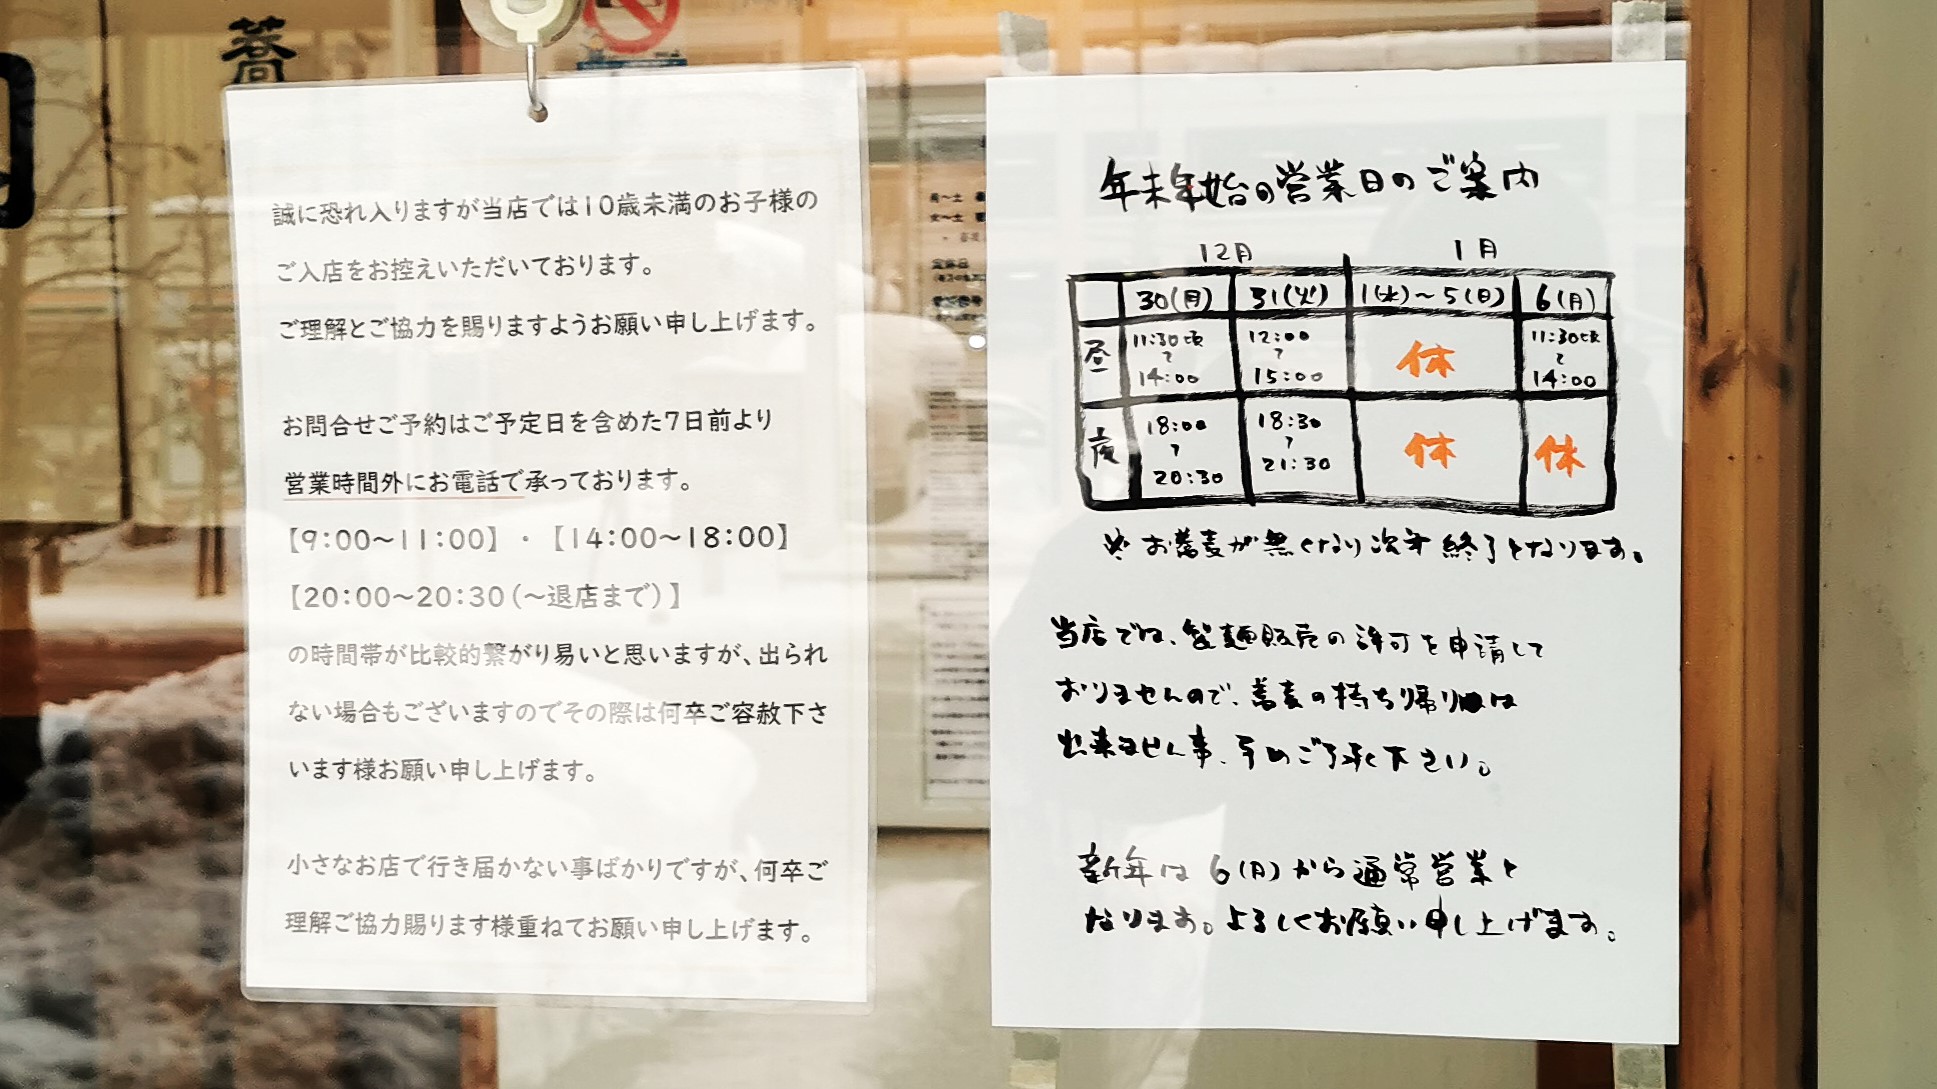 蕎
誠に恐れ入りますが当店では10歳未満のお子様の
ご入店をお控えいただいております。
ご理解とご協力を賜りますようお願い申し上げます。
お問合せご予約はご予定日を含めた7日前より
営業時間外にお電話で承っております。
【9:00～11:00】・【14:00～18:00】
【20:00～20:30(～退店まで)】
の時間帯が比較的繋がり易いと思いますが、出られ
ない場合もございますのでその際は何卒ご容赦下さ
います様お願い申し上げます。
小さなお店で行き届かない事ばかりですが、何卒ご
理解ご協力賜ります様重ねてお願い申し上げます。
年末年始の営業日のご案内
12月 1月
30(月) 31(火) 1(水)～5(日) 6(月)
昼 11:30頃～14:00 12:00～15:00 休 11:30頃～14:00
夜 18:00～20:30 18:30～21:30 休 休
※お蕎麦が無くなり次才終了となります。
当店では、製麺販売の許可を申請して
おりませんので、蕎麦の持ち帰りは
出来ません事、予めご了承下さい。
新年は6(月)から通常営業と
なります。よろしくお願い申し上げます。